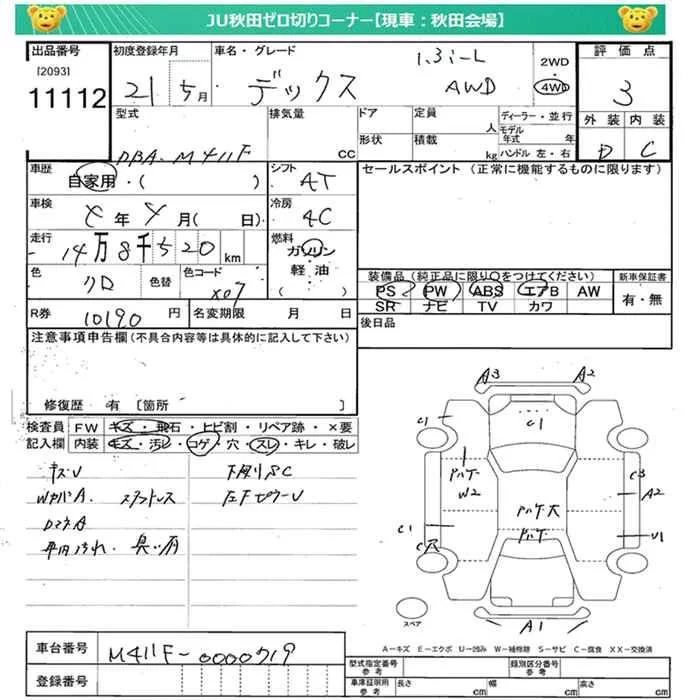 JU秋田ゼロ切りコーナー【現車：秋田会場】
出品番号 初度登録年月 車名・グレード 1.3i-L 2WD 評価点
[2093] 11112 21 5月 デックス AWD 4WD 3
型式 排気量 ドア 定員 人 ディーラー・並行 外装 内装
DBA-M411F CC 形状 積載 kg モデル年式 年 ハンドル 左・右 D C
車歴 シフト セールスポイント（正常に機能するものに限ります）
自家用・（ ） AT
車検 年 月（ 日） 冷房 AC
走行 14万8千520km 燃料 ガソリン
軽油
（ ）
色 クロ 色替 色コード X07
装備品（純正品に限り○をつけてください） 新車保証書
PS PW ABS エアB AW 有・無
SR ナビ TV カワ
R券 10190円 名変期限 月 日 後日品
注意事項申告欄（不具合内容等は具体的に記入して下さい）
修復歴 有 [箇所 ]
検査員 FW キズ・飛石・ヒビ割・リペア跡・×要
記入欄 内装 キズ・汚レ・コゲ・穴・スレ・キレ・破レ
キズU 下廻りSC
A3 A2
C1 C1
パテ
W2
C3
A2
パテ大
パテ
C1
C穴
U1
スペア
A1
A－キズ E－エクボ U－凹み W－補修跡 S－サビ C－腐食 XX－交換済
車台番号 M411F-0000719
登録番号
型式指定番号 参考 類別区分番号 参考
車庫証明用 参考 長さ cm 幅 cm 高さ cm